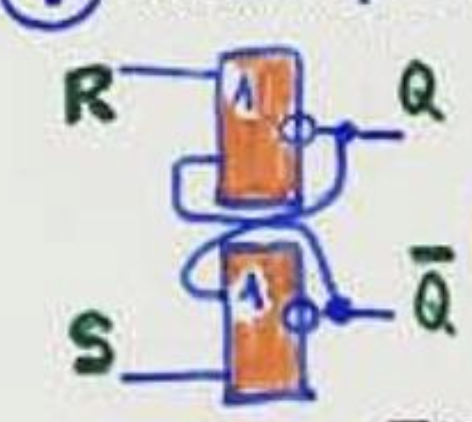 R 1 Q
1 Q̅
S